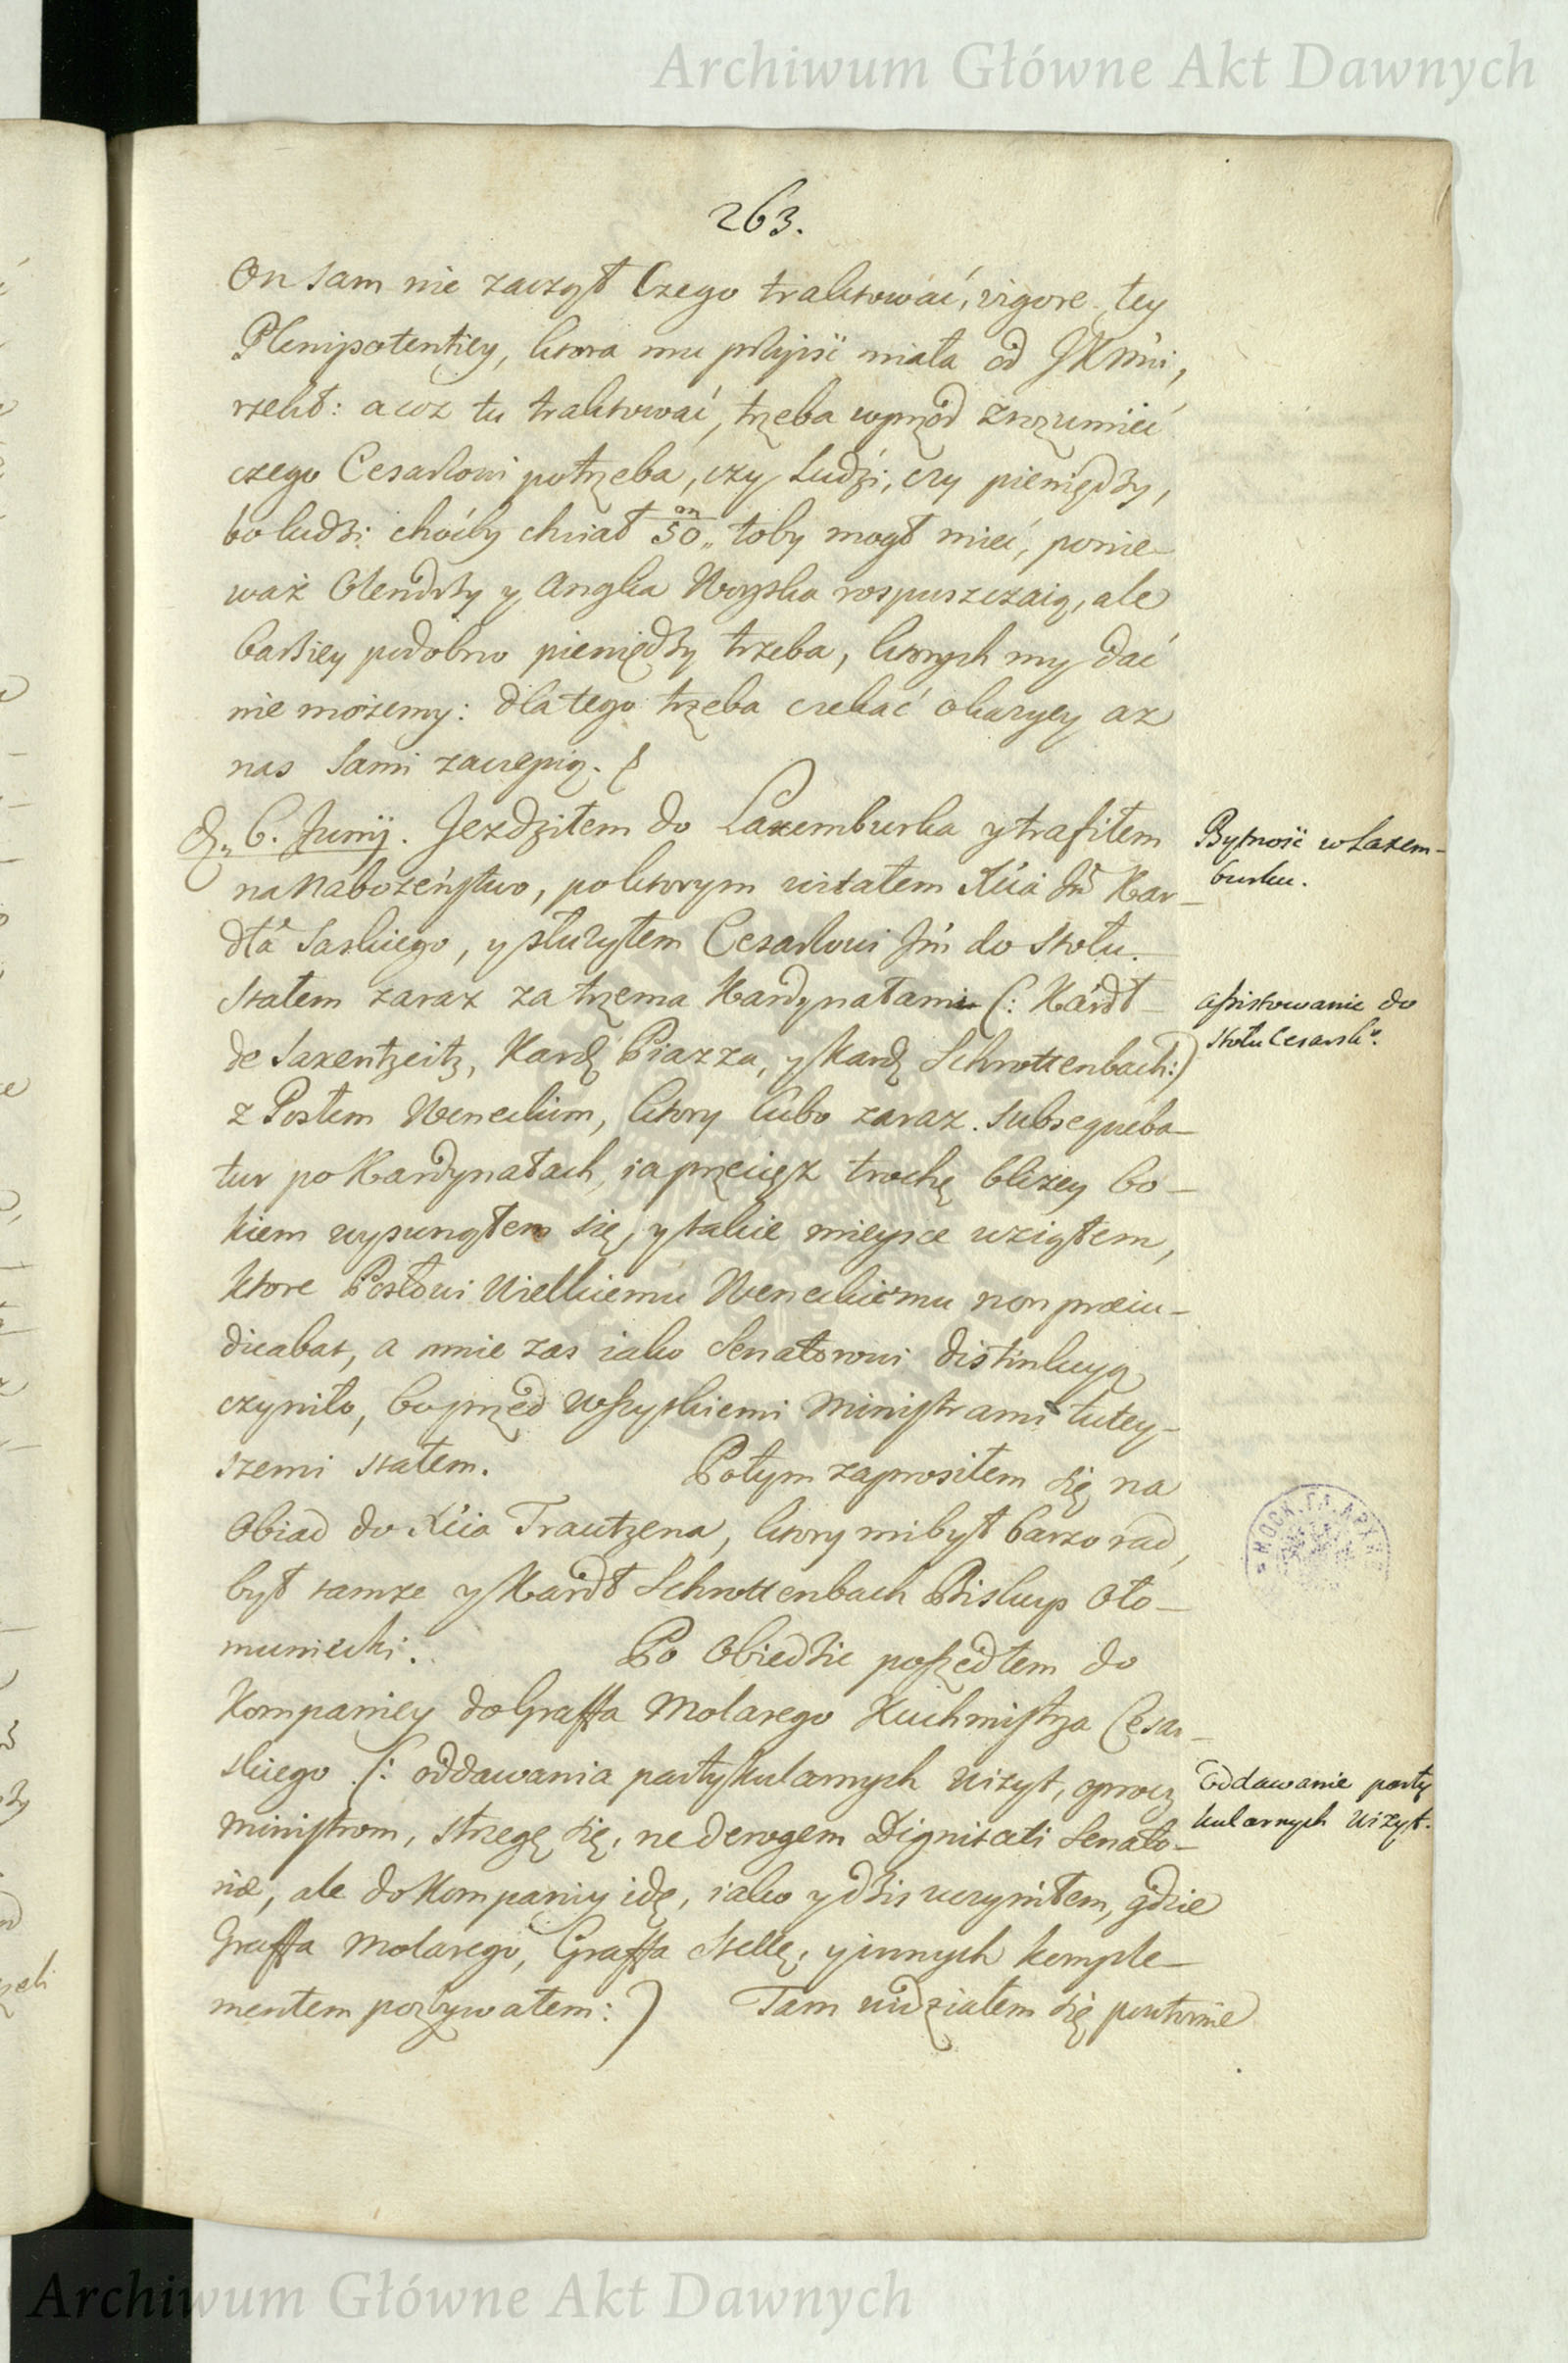 Archiwum Główne Akt Dawnych
263.
On sam nie zaczął Czego traktować, vigore tey
Plenipotentiey, ktora mu przyiść miała od JKMŃi,
rzekł: a coż tu traktować, trzeba wprzod zrozumieć
czego Cesarzowi potrzeba, czy Ludzi, czy pieniędzy,
bo ludzi choćby chciał 50 toby mogł mieć, ponie-
waż Olendrzy y Anglia Woyska rospuszczaią, ale
barziey podobno pieniędzy trzeba, ktorych my dać
nie możemy: dla tego trzeba czekać okazyey az
nas sami zaczepią.
D. 6. Junij. Jezdziłem do Laxemburka y trafiłem
na Nabożeństwo, po ktorym witałem Xćia Jm̃ Kar-
dła Saskiego, y służyłem Cesarzowi Jm̃ do stołu.
Stałem zaraz za trzema Kardynałami (: Kardł
de Saxentzeitz, Kard Piazza, y Kard Schrottenbach:)
z Posłem Weneckim, ktory lubo zaraz subsequeba-
tur po Kardynałach, ia przecięz trochę bliżey bo-
kiem wysunąłem się, y takie mieysce wziąłem,
ktore Posłowi Wielkiemu Weneckiemu non præiu-
dicabat, a mnie zas iako Senatorowi distinkcyą
czyniło, bo przed wszystkiemi Ministrami tutey-
szemi stałem. Potym zaprosiłem się na
Obiad do Xćia Trautzena, ktory mi był barzo rad,
był tamze y Kardł Schrottenbach Biskup Oło-
muniecki. Po Obiedzie poszedłem do
Kompaniey do Graffa Molarego Kuchmistrza Cesar-
skiego (: oddawania partykularnych wizyt, oprocz
Ministrom, strzegę się, ne derogem Dignitati Senato-
riæ, ale do Kompaniy idę, iako y dzis uczyniłem, gdzie
Graffa Molarego, Graffa Stellę, y innych komple-
mentem pozbywałem:) Tam widziałem się powtornie
Bytność w Laxem-
burku.
Assistowanie do
stołu Cesarskº.
Oddawanie party
kularnych wizyt.
МОСК. ГЛ. АРХИ
Archiwum Główne Akt Dawnych